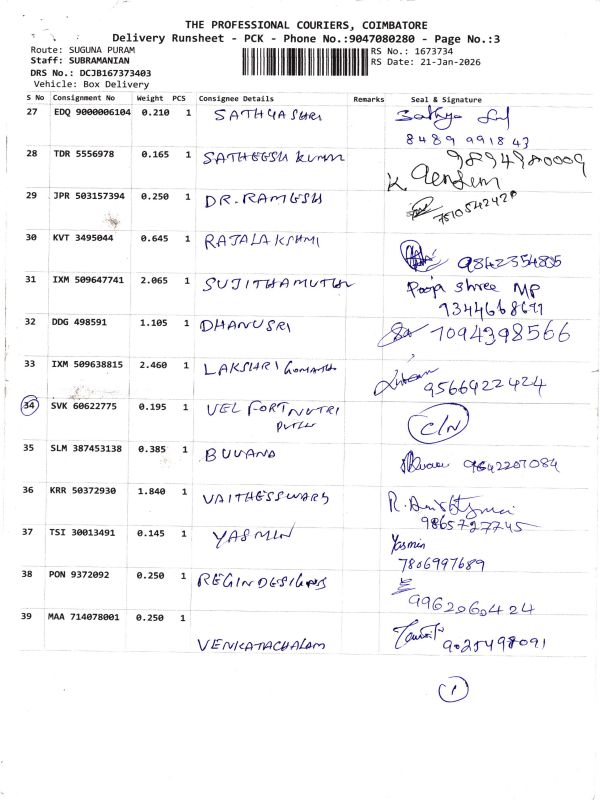 THE PROFESSIONAL COURIERS, COIMBATORE
Delivery Runsheet - PCK - Phone No.:9047080280 - Page No.:3
Route: SUGUNA PURAM
RS No.: 1673734
Staff: SUBRAMANIAN
RS Date: 21-Jan-2026
DRS No.: DCJB167373403
Vehicle: Box Delivery
S No Consignment No Weight PCS Consignee Details Remarks Seal & Signature
27 EDQ 9000006104 0.210 1 SATHYASHRI Sathya
8489 991843
28 TDR 5556978 0.165 1 SATHEESH KUMAR 9894980009
29 JPR 503157394 0.250 1 DR.RAMESH 7510542420
30 KVT 3495044 0.645 1 RAJALAKSHMI 9842354805
31 IXM 509647741 2.065 1 SUJITHAMUTHU Pooja Shree MP
32 DDG 498591 1.105 1 DHANUSRI 7094398566
33 IXM 509638815 2.460 1 LAKSHRI GOMATHI 9566922424
34 SVK 60622775 0.195 1 VEL FORT NUTRI C/N
35 SLM 387453138 0.385 1 BUVANA 9842207084
36 KRR 50372930 1.840 1 VAITHESSWARY
9865727745
37 TSI 30013491 0.145 1 YASMIN Yasmin
7806997689
38 PON 9372092 0.250 1 REGIN DESIGNS
9962060424
39 MAA 714078001 0.250 1
VENKATACHALAM 9025498091
1